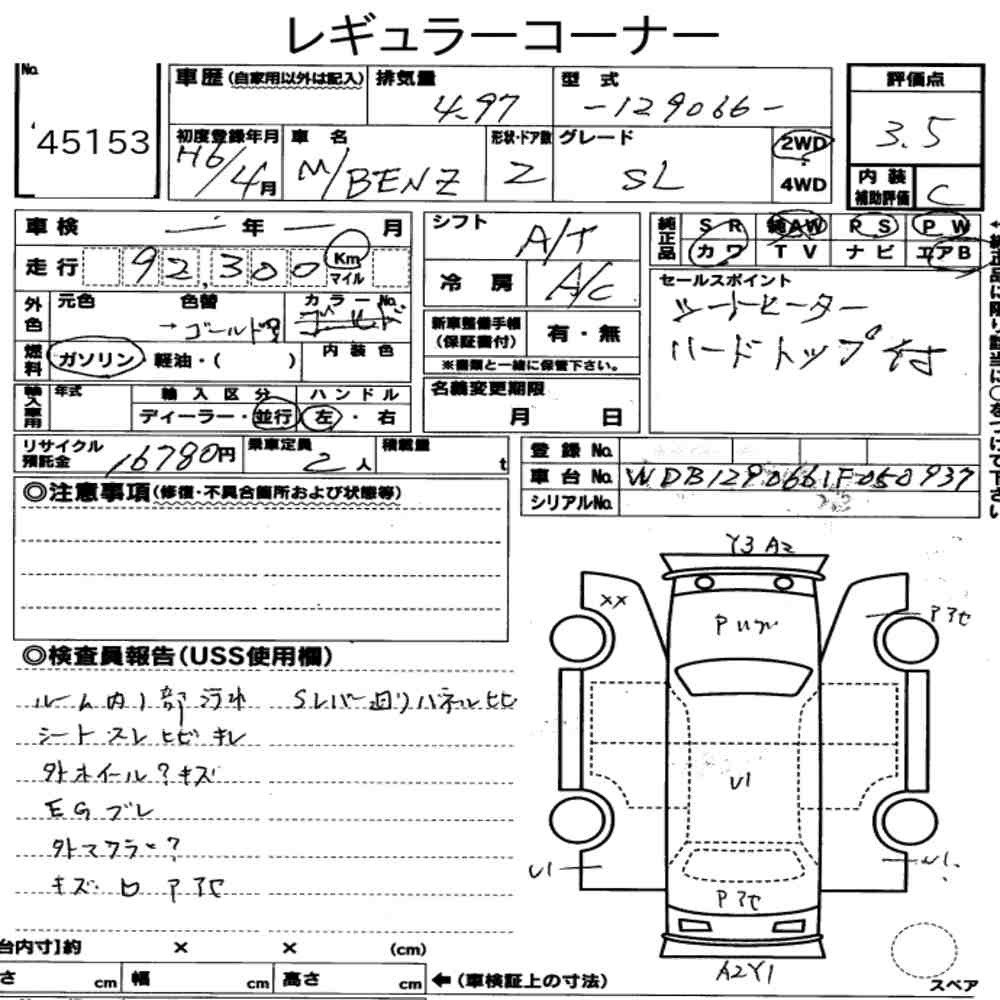 レギュラーコーナー
No. 45153
車歴 (自家用以外は記入) 排気量 4.97 型式 -129066-
評価点 3.5
初度登録年月 H6/4月 車名 M/BENZ 形状・ドア数 2 グレード SL 2WD・4WD
内装補助評価 C
車検 年 月
走行 92,300 Km マイル
外色 元色 色替 →ゴールド カラーNo. ゴールド
燃料 ガソリン・軽油・( ) 内装色
輸入車用 年式 輸入区分 ディーラー・並行 ハンドル 左・右
シフト A/T
冷房 A/C
新車整備手帳(保証書付) 有・無
※書類と一緒に保管下さい。
名義変更期限 月 日
純正品 SR 純AW RS PW
カワ TV ナビ エアB
セールスポイント
シートヒーター
ハードトップ付
リサイクル預託金 16780円 乗車定員 2人 積載量 t
登録No.
車台No. WDB1290661F050937
シリアルNo.
◎注意事項(修復・不具合箇所および状態等)
◎検査員報告(USS使用欄)
ルーム内1部汚れ Sレバー廻りパネルヒビ
シートスレヒビキレ
外ホイール?キズ
EGブレ
外マフラー?
キズ・ロアアセ
Y3 A2
XX
アアセ
P
U1
U1
P アセ
A2Y1
台内寸]約 × × (cm)
さ cm 幅 cm 高さ cm ←(車検証上の寸法)
スペア